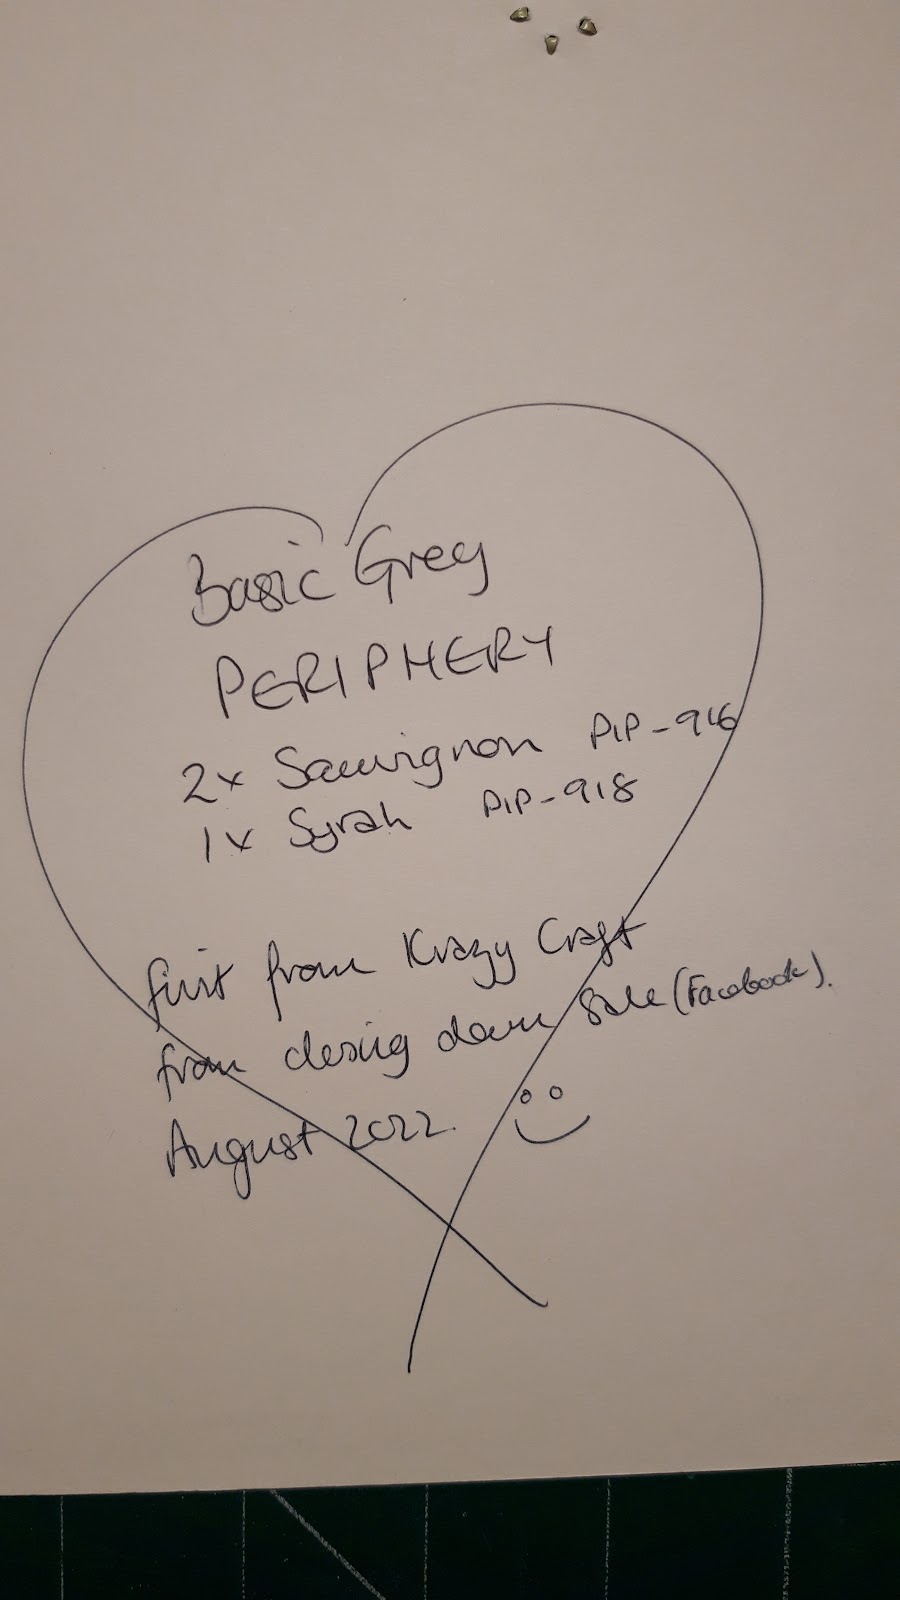 Basic Grey
PERIPHERY
2x Sauvignon PIP-916
1x Syrah PIP-918
first from Krazy Craft
from closing down Sale (Facebook).
August 2022.